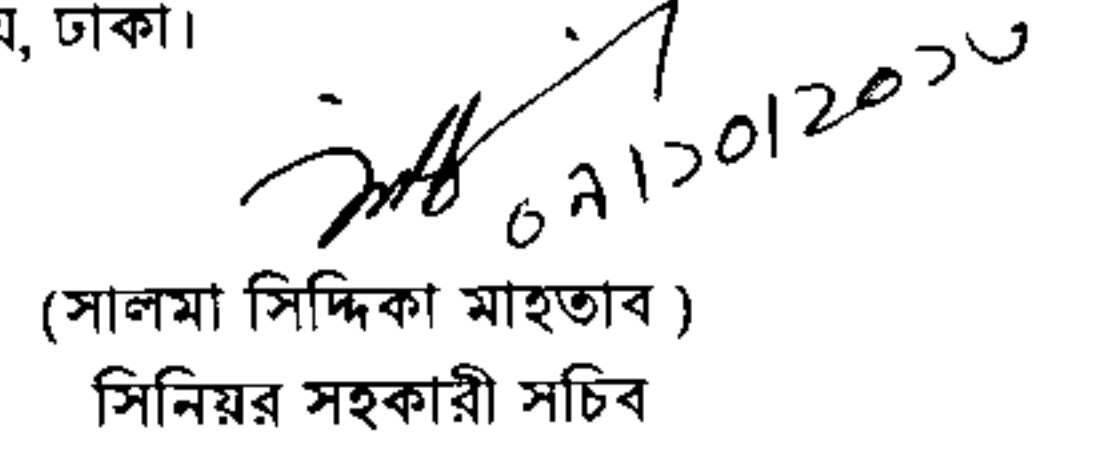 য়, ঢাকা।
০৭।১০।২০১৩
(সালমা সিদ্দিকা মাহতাব )
সিনিয়র সহকারী সচিব